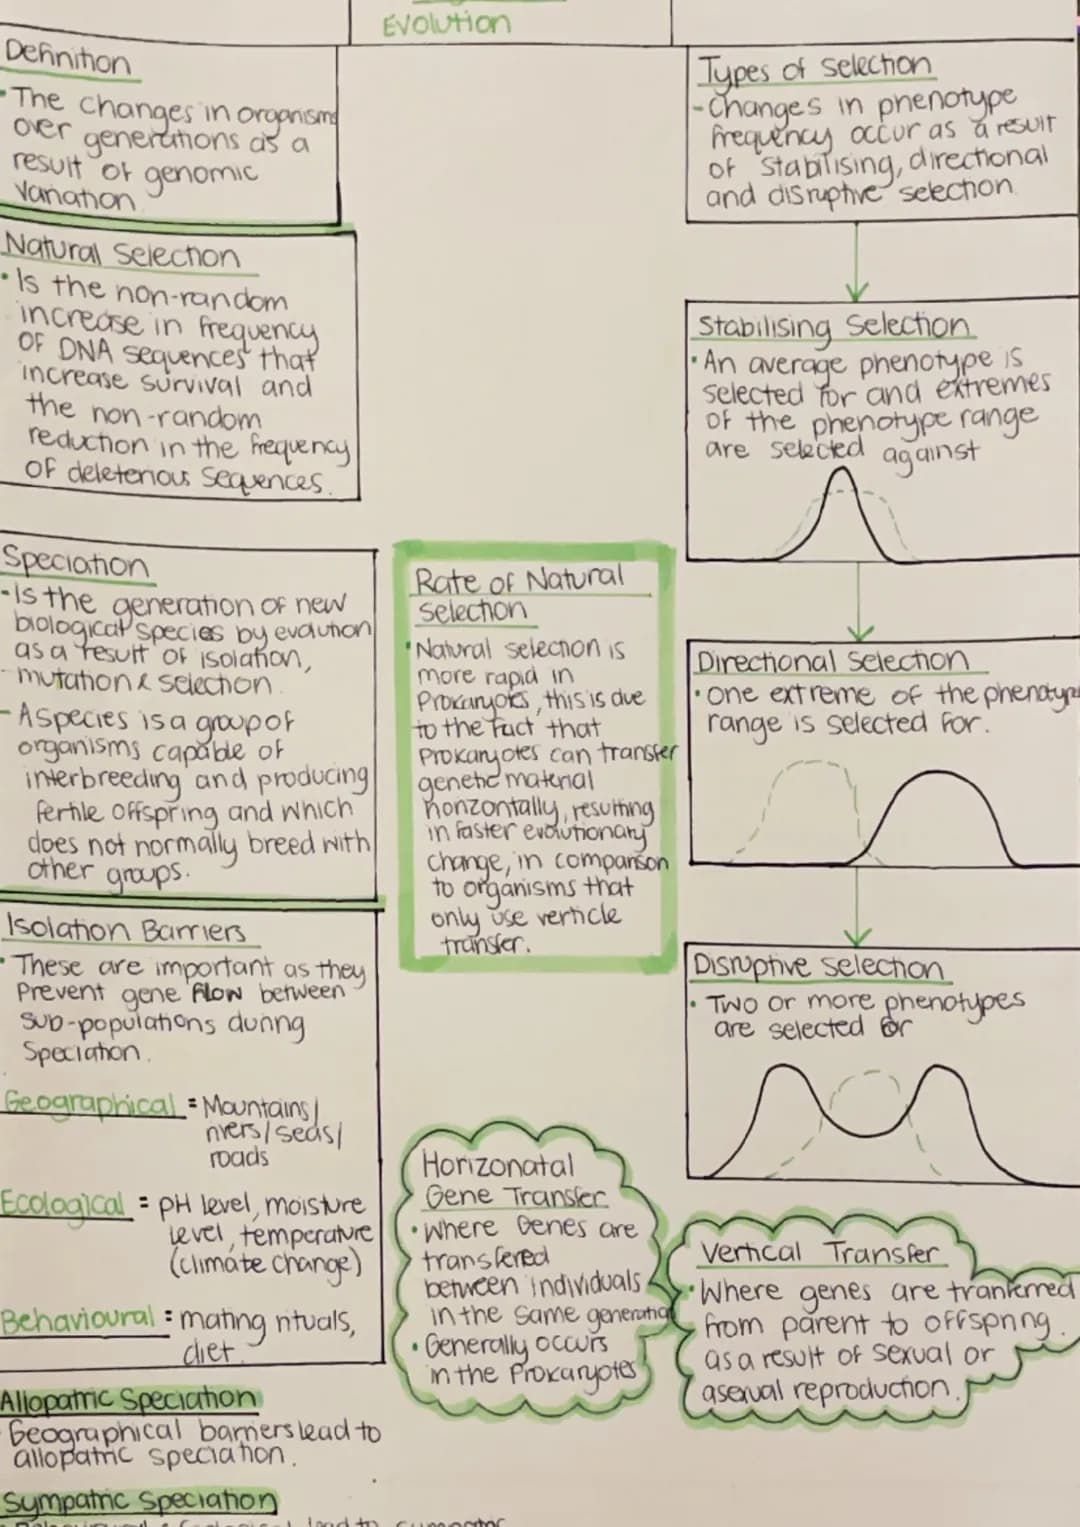 Evolution
Definition
• The changes in organisms
over generations as a
result of genomic
variation.
Natural Selection
• Is the non-random
increase in frequency
of DNA sequences that
increase survival and
the non-random
reduction in the frequency
of deleterious sequences.
Speciation
- Is the generation of new
biological species by evolution
as a result of isolation,
mutation & selection.
- A species is a group of
organisms capable of
interbreeding and producing
fertile offspring and which
does not normally breed with
other groups.
Isolation Barriers
• These are important as they
Prevent gene flow between
sub-populations during
Speciation.
Geographical = Mountains/
rivers/seas/
roads
Ecological = pH level, moisture
level, temperature
(climate change)
Behavioural = mating rituals,
diet.
Allopatric Speciation
Geographical barriers lead to
allopatric speciation.
Sympatric Speciation
Rate of Natural
Selection
• Natural selection is
more rapid in
Prokaryotes, this is due
to the fact that
Prokaryotes can transfer
genetic material
horizontally, resulting
in faster evolutionary
change, in comparison
to organisms that
only use verticle
transfer.
Horizonatal
Gene Transfer
• Where Genes are
transfered
between individuals
in the same generation
• Generally occurs
in the Prokaryotes
Types of selection
- Changes in phenotype
frequency occur as a result
of stabilising, directional
and disruptive selection.
Stabilising Selection
• An average phenotype is
selected for and extremes
of the phenotype range
are selected against
Directional Selection
• One extreme of the phenotype
range is selected for.
Disruptive selection
• Two or more phenotypes
are selected for
Vertical Transfer
• Where genes are tranferred
from parent to offspring
as a result of sexual or
asexual reproduction.